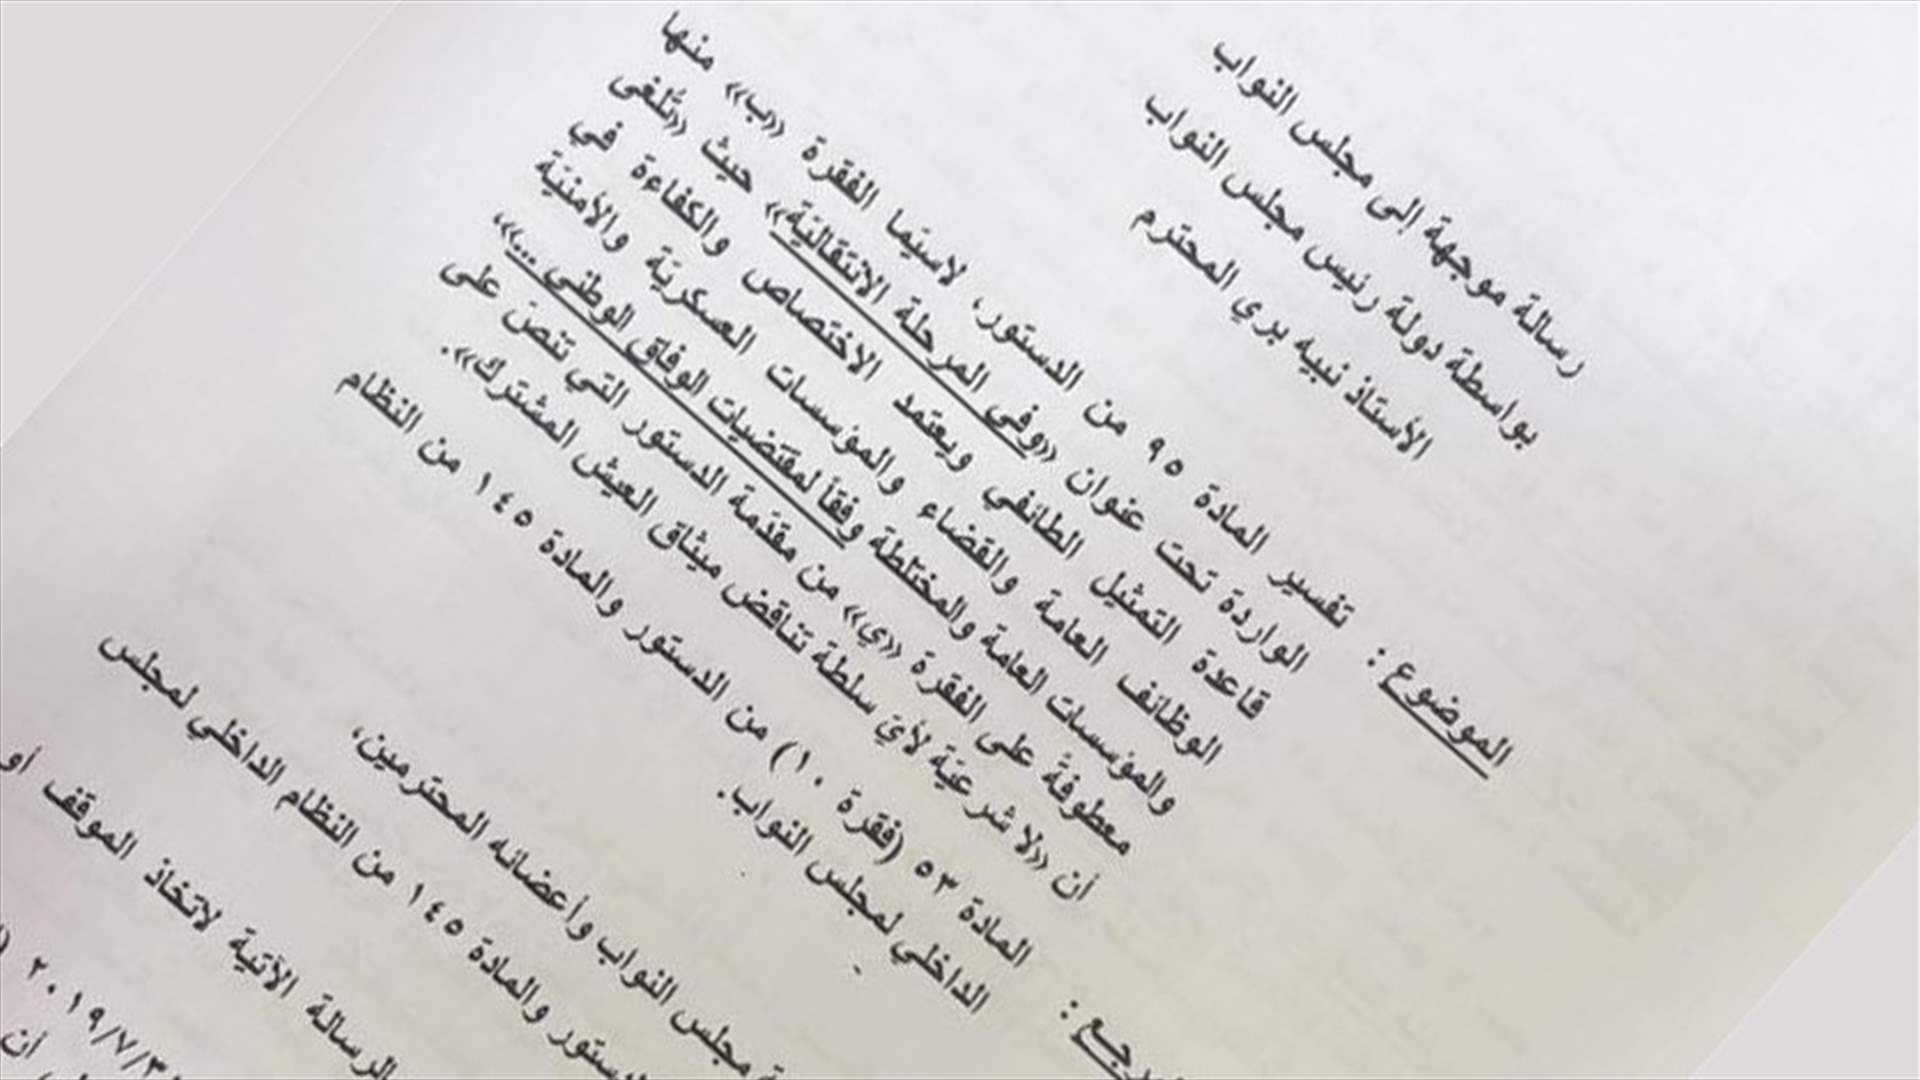 رسالة موجهة إلى مجلس النواب
بواسطة دولة رئيس مجلس النواب
الأستاذ نبيه بري المحترم
الموضوع : تفسير المادة ٩٥ من الدستور، لاسيّما الفقرة «ب» منها
الواردة تحت عنوان «وفي المرحلة الانتقاليّة» حيث «تُلغى
قاعدة التمثيل الطائفي ويعتمد الاختصاص والكفاءة في
الوظائف العامة والقضاء والمؤسسات العسكريّة والأمنيّة
والمؤسسات العامة والمختلطة وفقاً لمقتضيات الوفاق الوطني ...»،
معطوفةً على الفقرة «ي» من مقدّمة الدستور التي تنصّ على
أن «لا شرعيّة لأيّ سلطة تناقض ميثاق العيش المشترك».
المرجع : المادة ٥٣ (فقرة ١٠) من الدستور والمادة ١٤٥ من النظام
الداخلي لمجلس النواب.
مجلس النواب وأعضائه المحترمين،
الدستور والمادة ١٤٥ من النظام الداخلي لمجلس
الرسالة الآتية لاتخاذ الموقف أو
٢٠١٩/٧/٣
أن